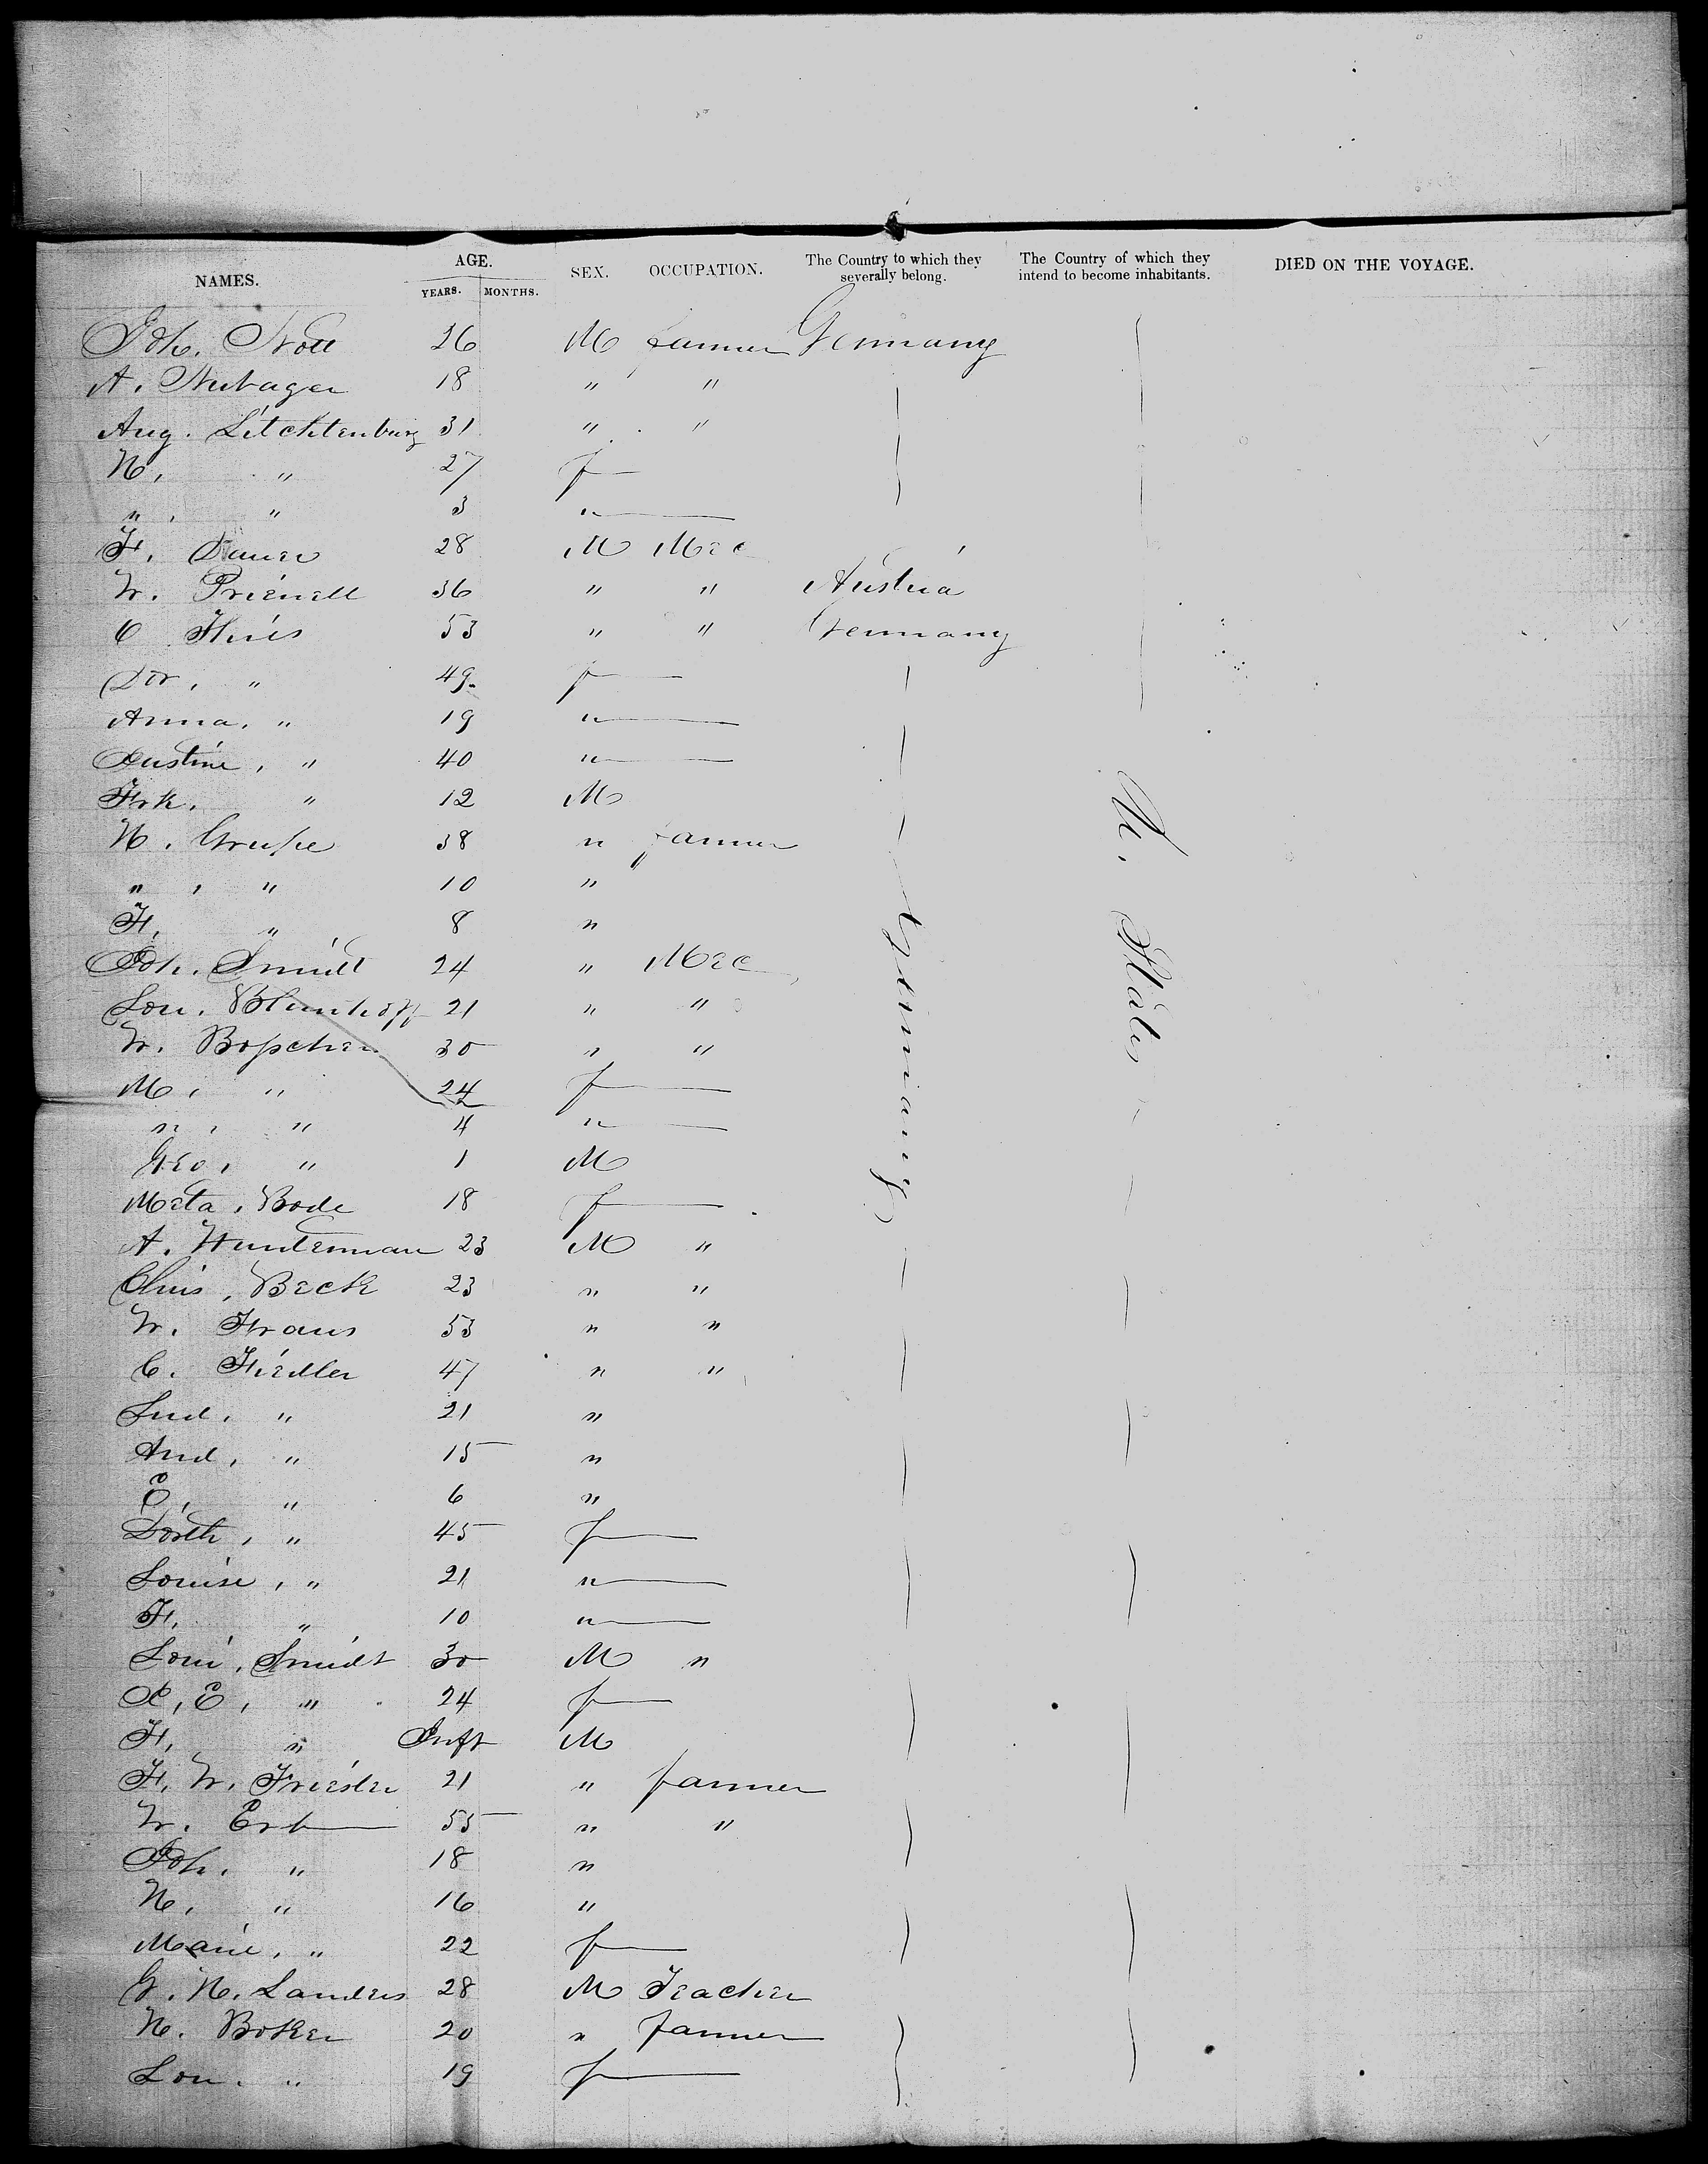 NAMES. AGE. YEARS. MONTHS. SEX. OCCUPATION. The Country to which they severally belong. The Country of which they intend to become inhabitants. DIED ON THE VOYAGE.
Joh. Noll 26 M farmer Germany
A. Neuhager 18 " "
Aug. Litchtenburg 31 " "
H. " 27 f
" " 3 "
F. Sauer 28 M Mec
W. Prienell 36 " " Austria
C Fluis 53 " " Germany
Dor. " 49 f
Anna. " 19 "
Justine, " 40 "
Frk. " 12 M
H. Grupe 38 " farmer
" , " 10 " "
F, " 8 "
Joh. Smidt 24 " Mec
Lou. Blumhoff 21 " "
W. Bopscher 30 " "
M, " 24 f
" , " 4 "
Geo, " 1 M
Meta, Bode 18 f
A. Hunterman 23 M "
Chris, Beck 23 " "
W. Fraus 53 " "
C. Fiedler 47 " "
Lud, " 21 "
And, " 15 "
E, " 6 "
Dorth, " 45 f
Louise, " 21 "
F, " 10 "
Loui, Smidt 30 M "
E, " 24 f
F, " Inft M
F. W. Friester 21 " farmer
W. Erb 55 " "
Joh. " 18 "
H, " 16 "
Marie, " 22 f
G. H. Landers 28 M Teacher
H. Boker 20 " farmer
Lou. " 19 f
Germany
U. States